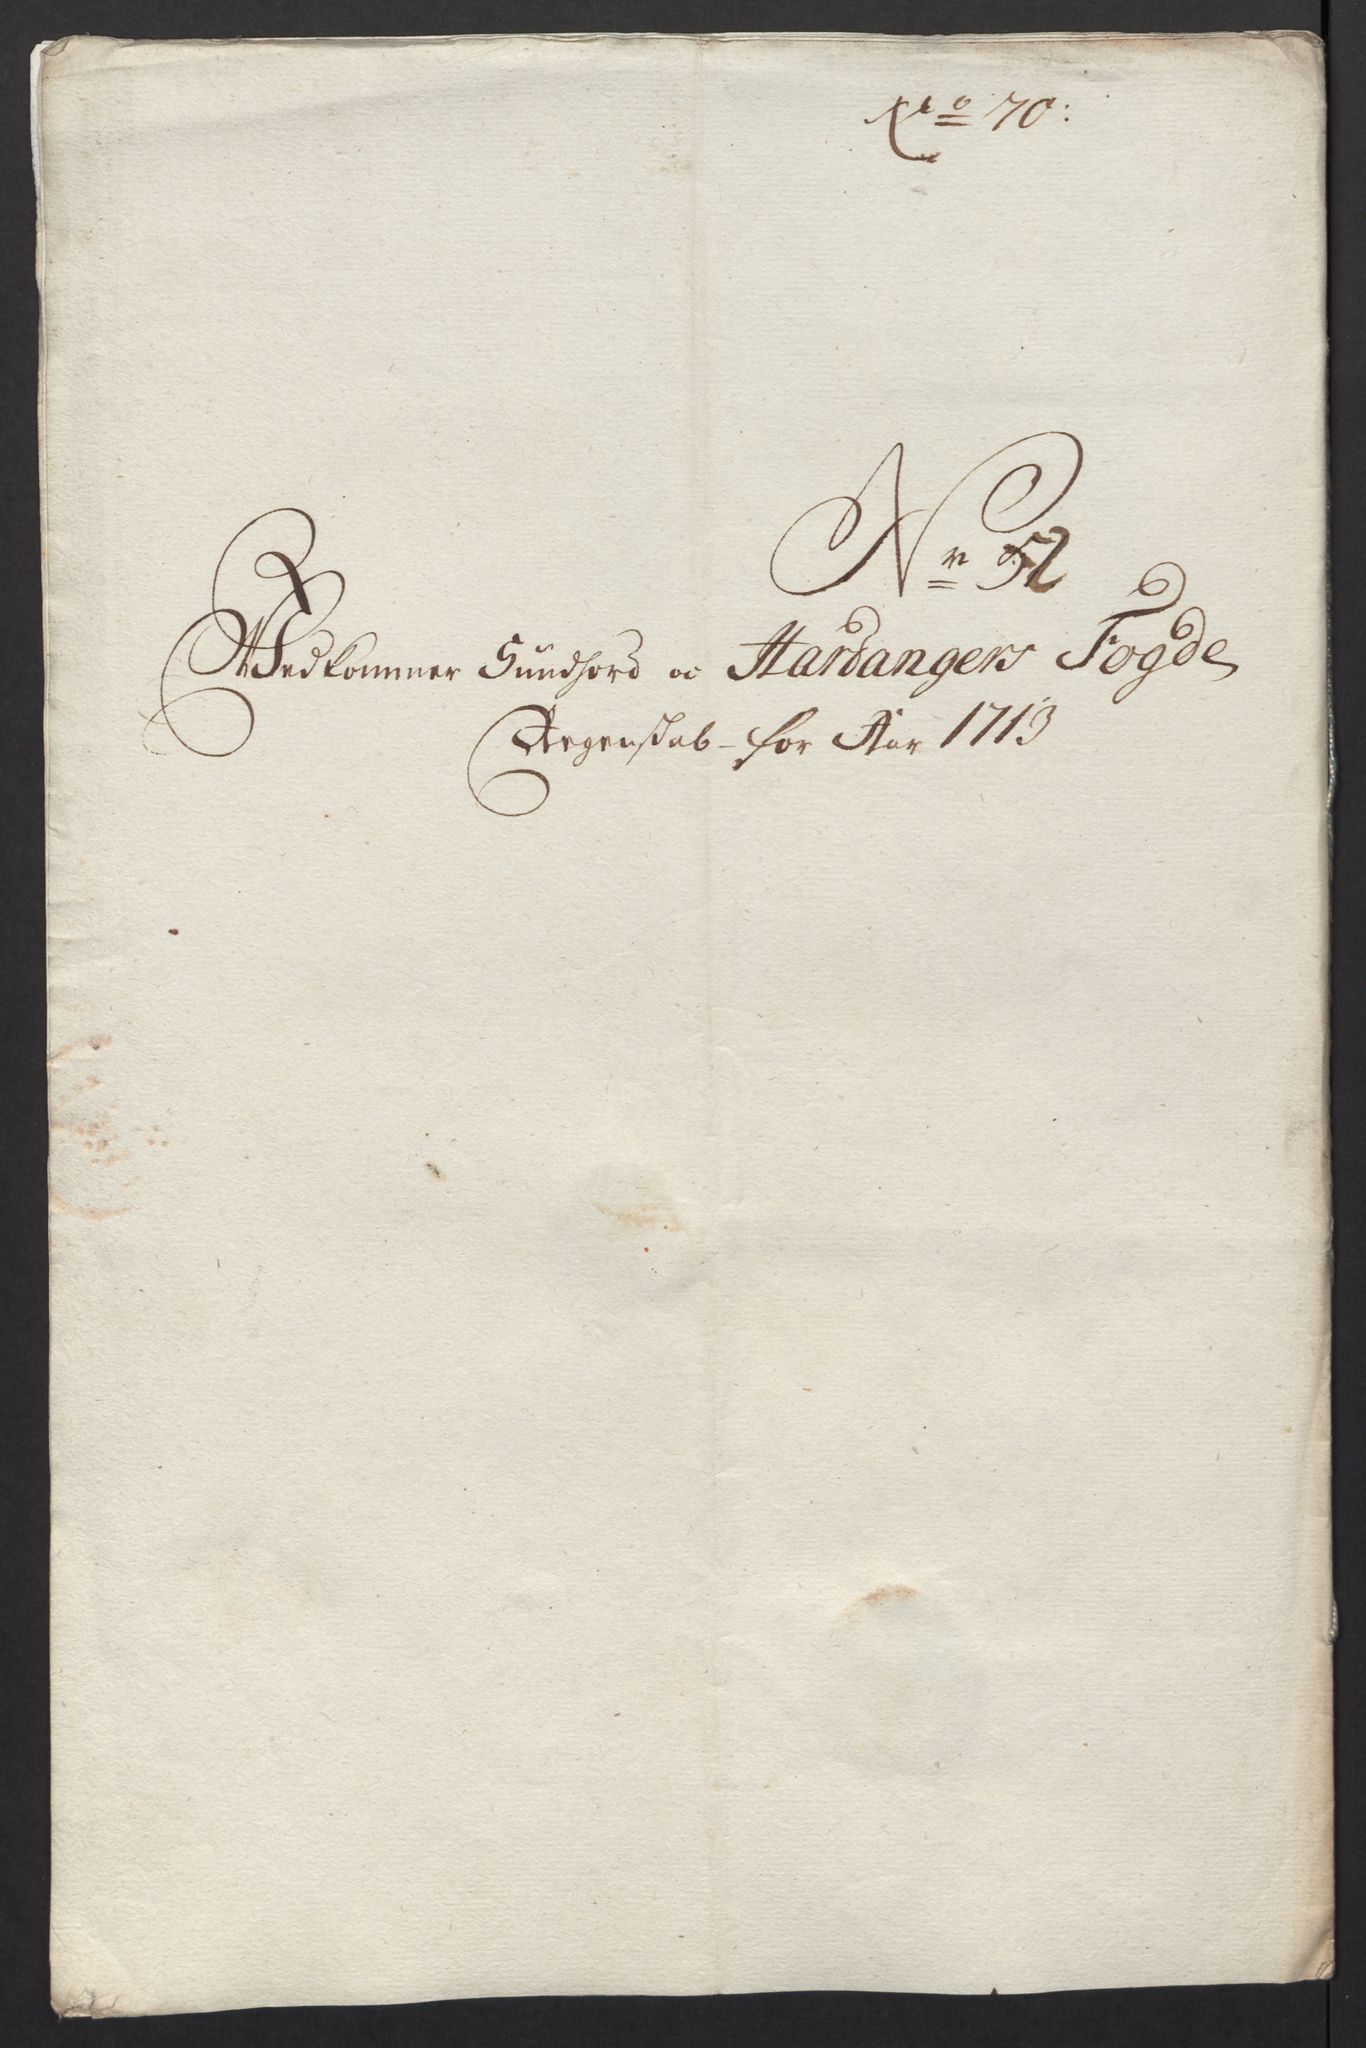 No 70:
Nr 52
Vedkommer Sundhord oc Hardangers Fogde
Regenskab - for Aar 1713